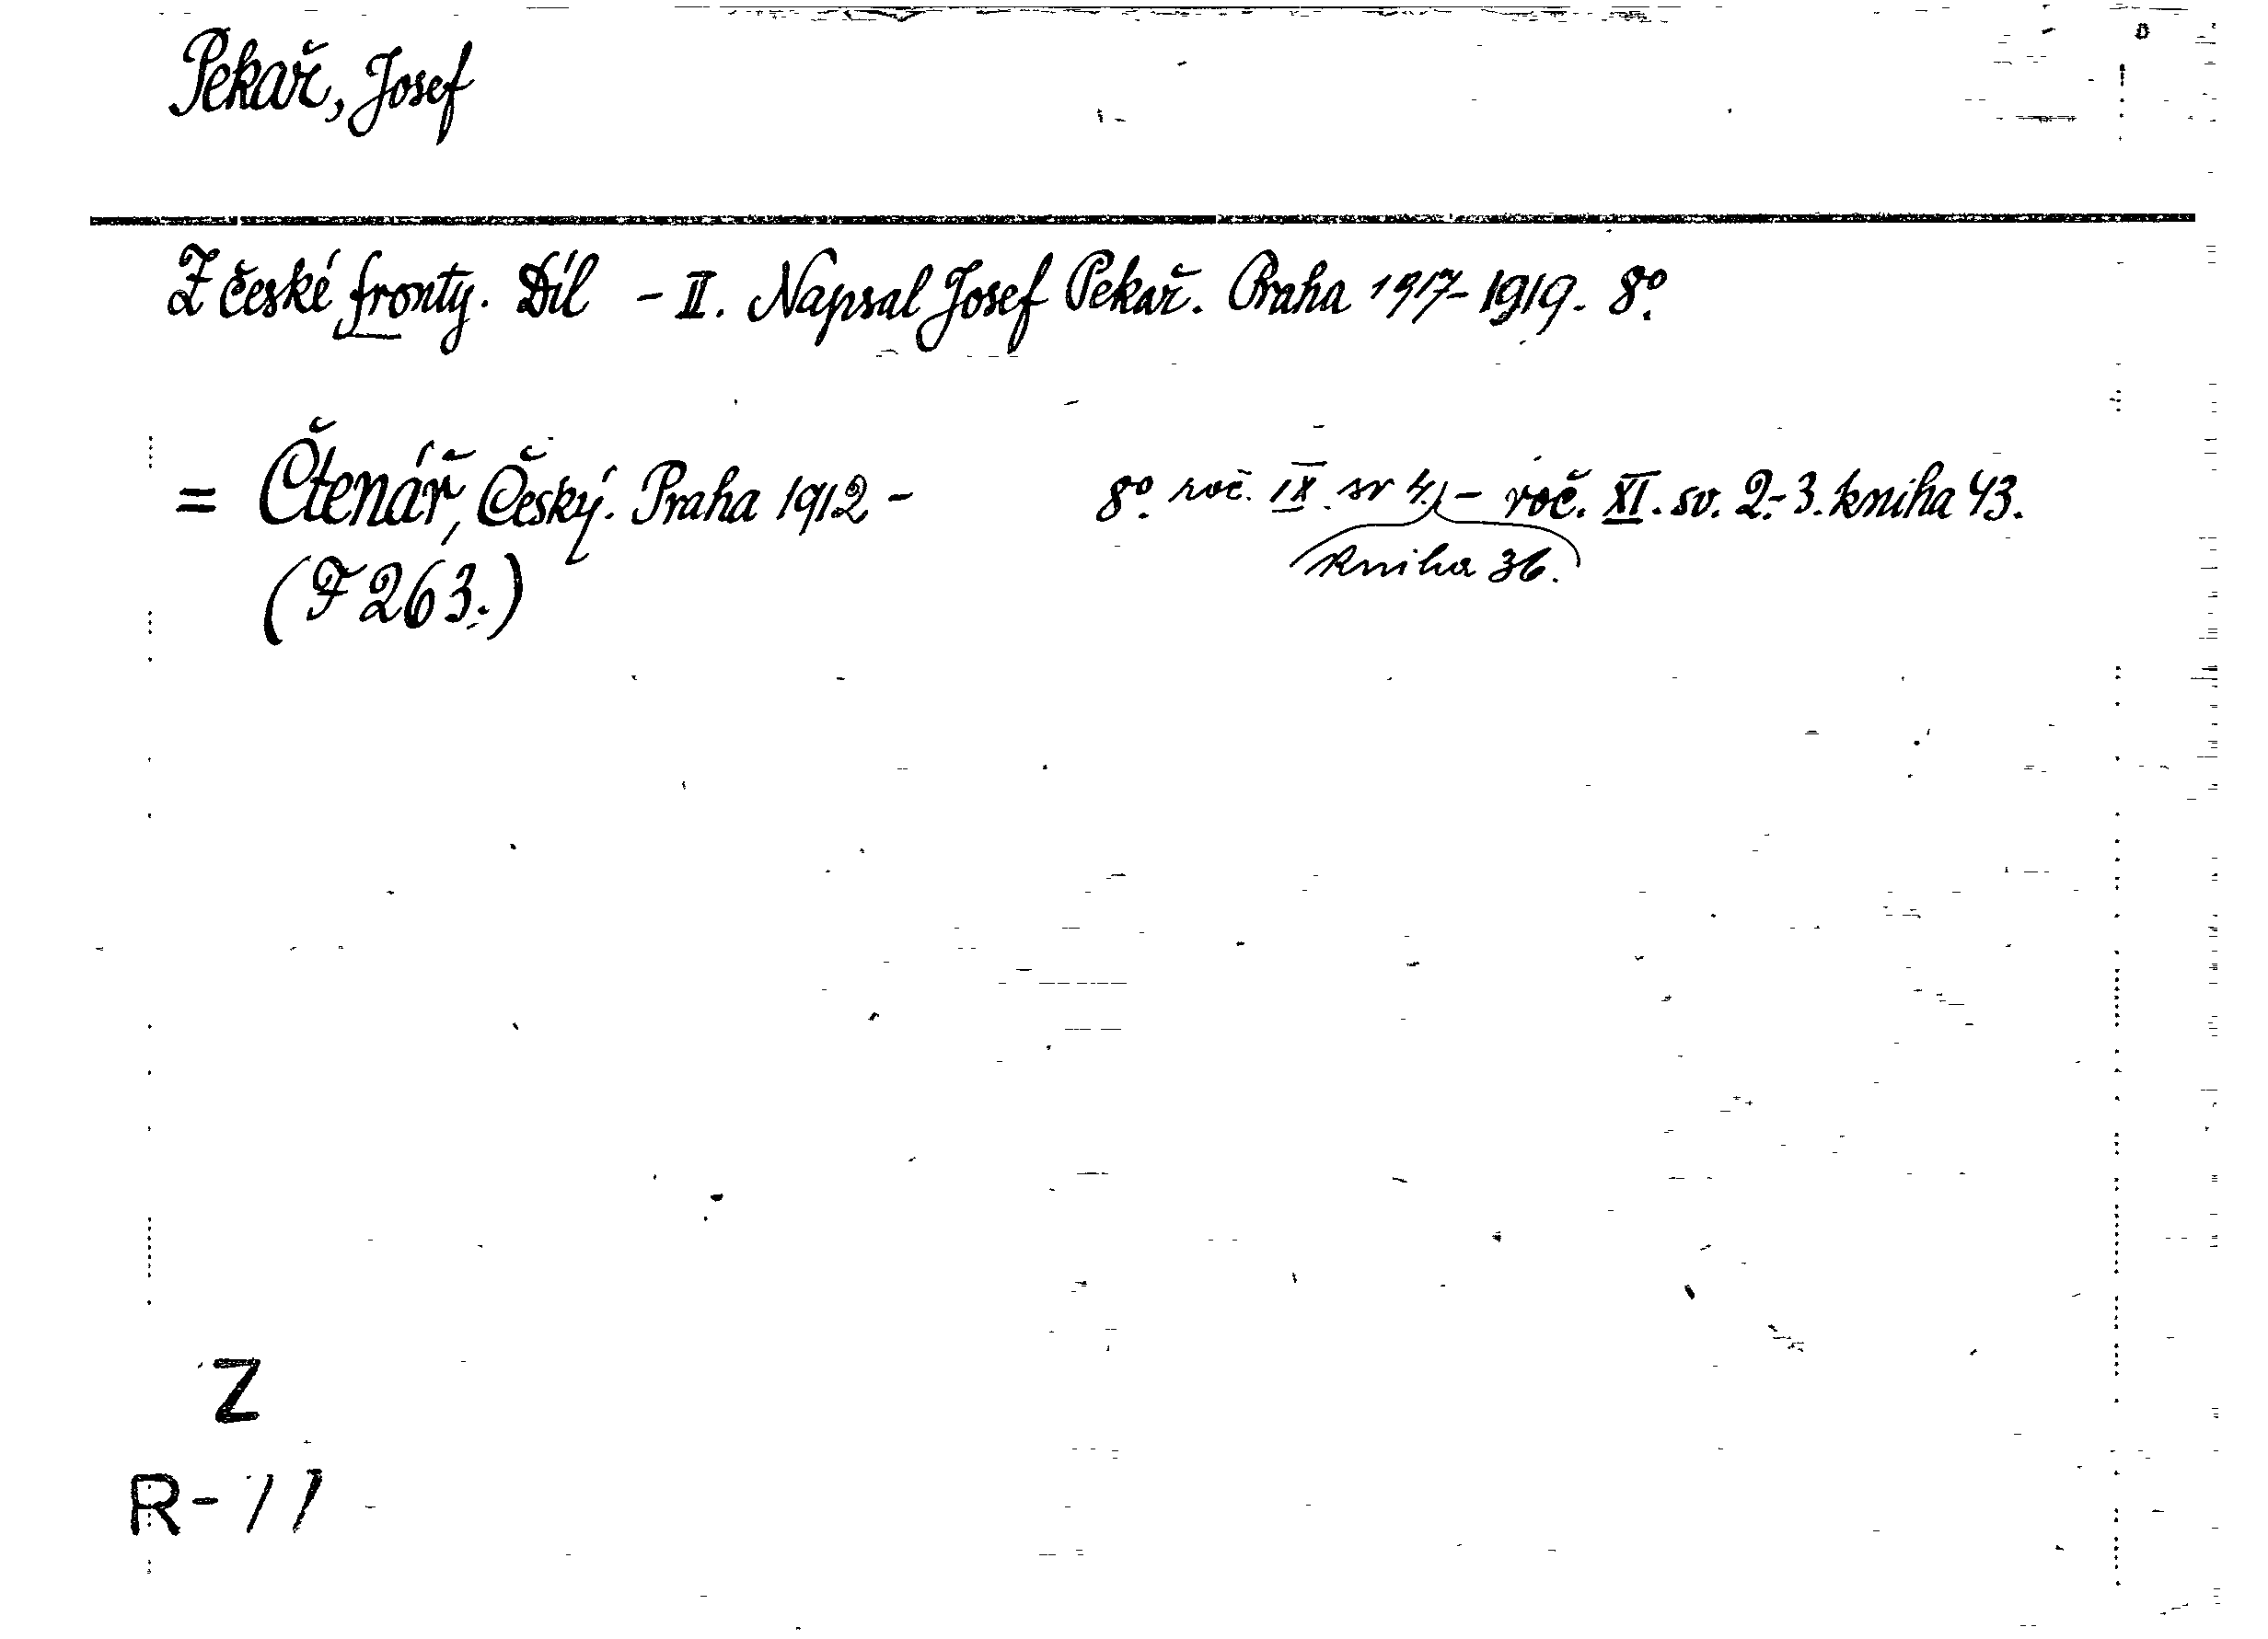 Pekař, Josef
Z české fronty. Díl - II. Napsal Josef Pekař. Praha 1917-1919. 8°.
= Čtenář, Český. Praha 1912 - 8°. roč. IX. sv 4. - roč. XI. sv. 2.-3. kniha 43.
kniha 36.
(F 263.)
Z
R-11